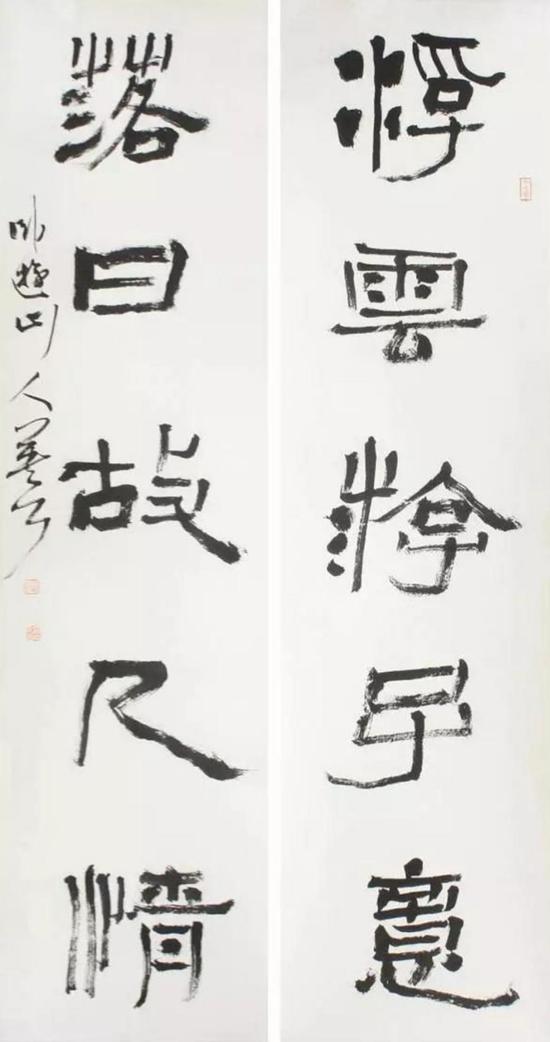 浮雲游子意
落日故人情
卧遊山人